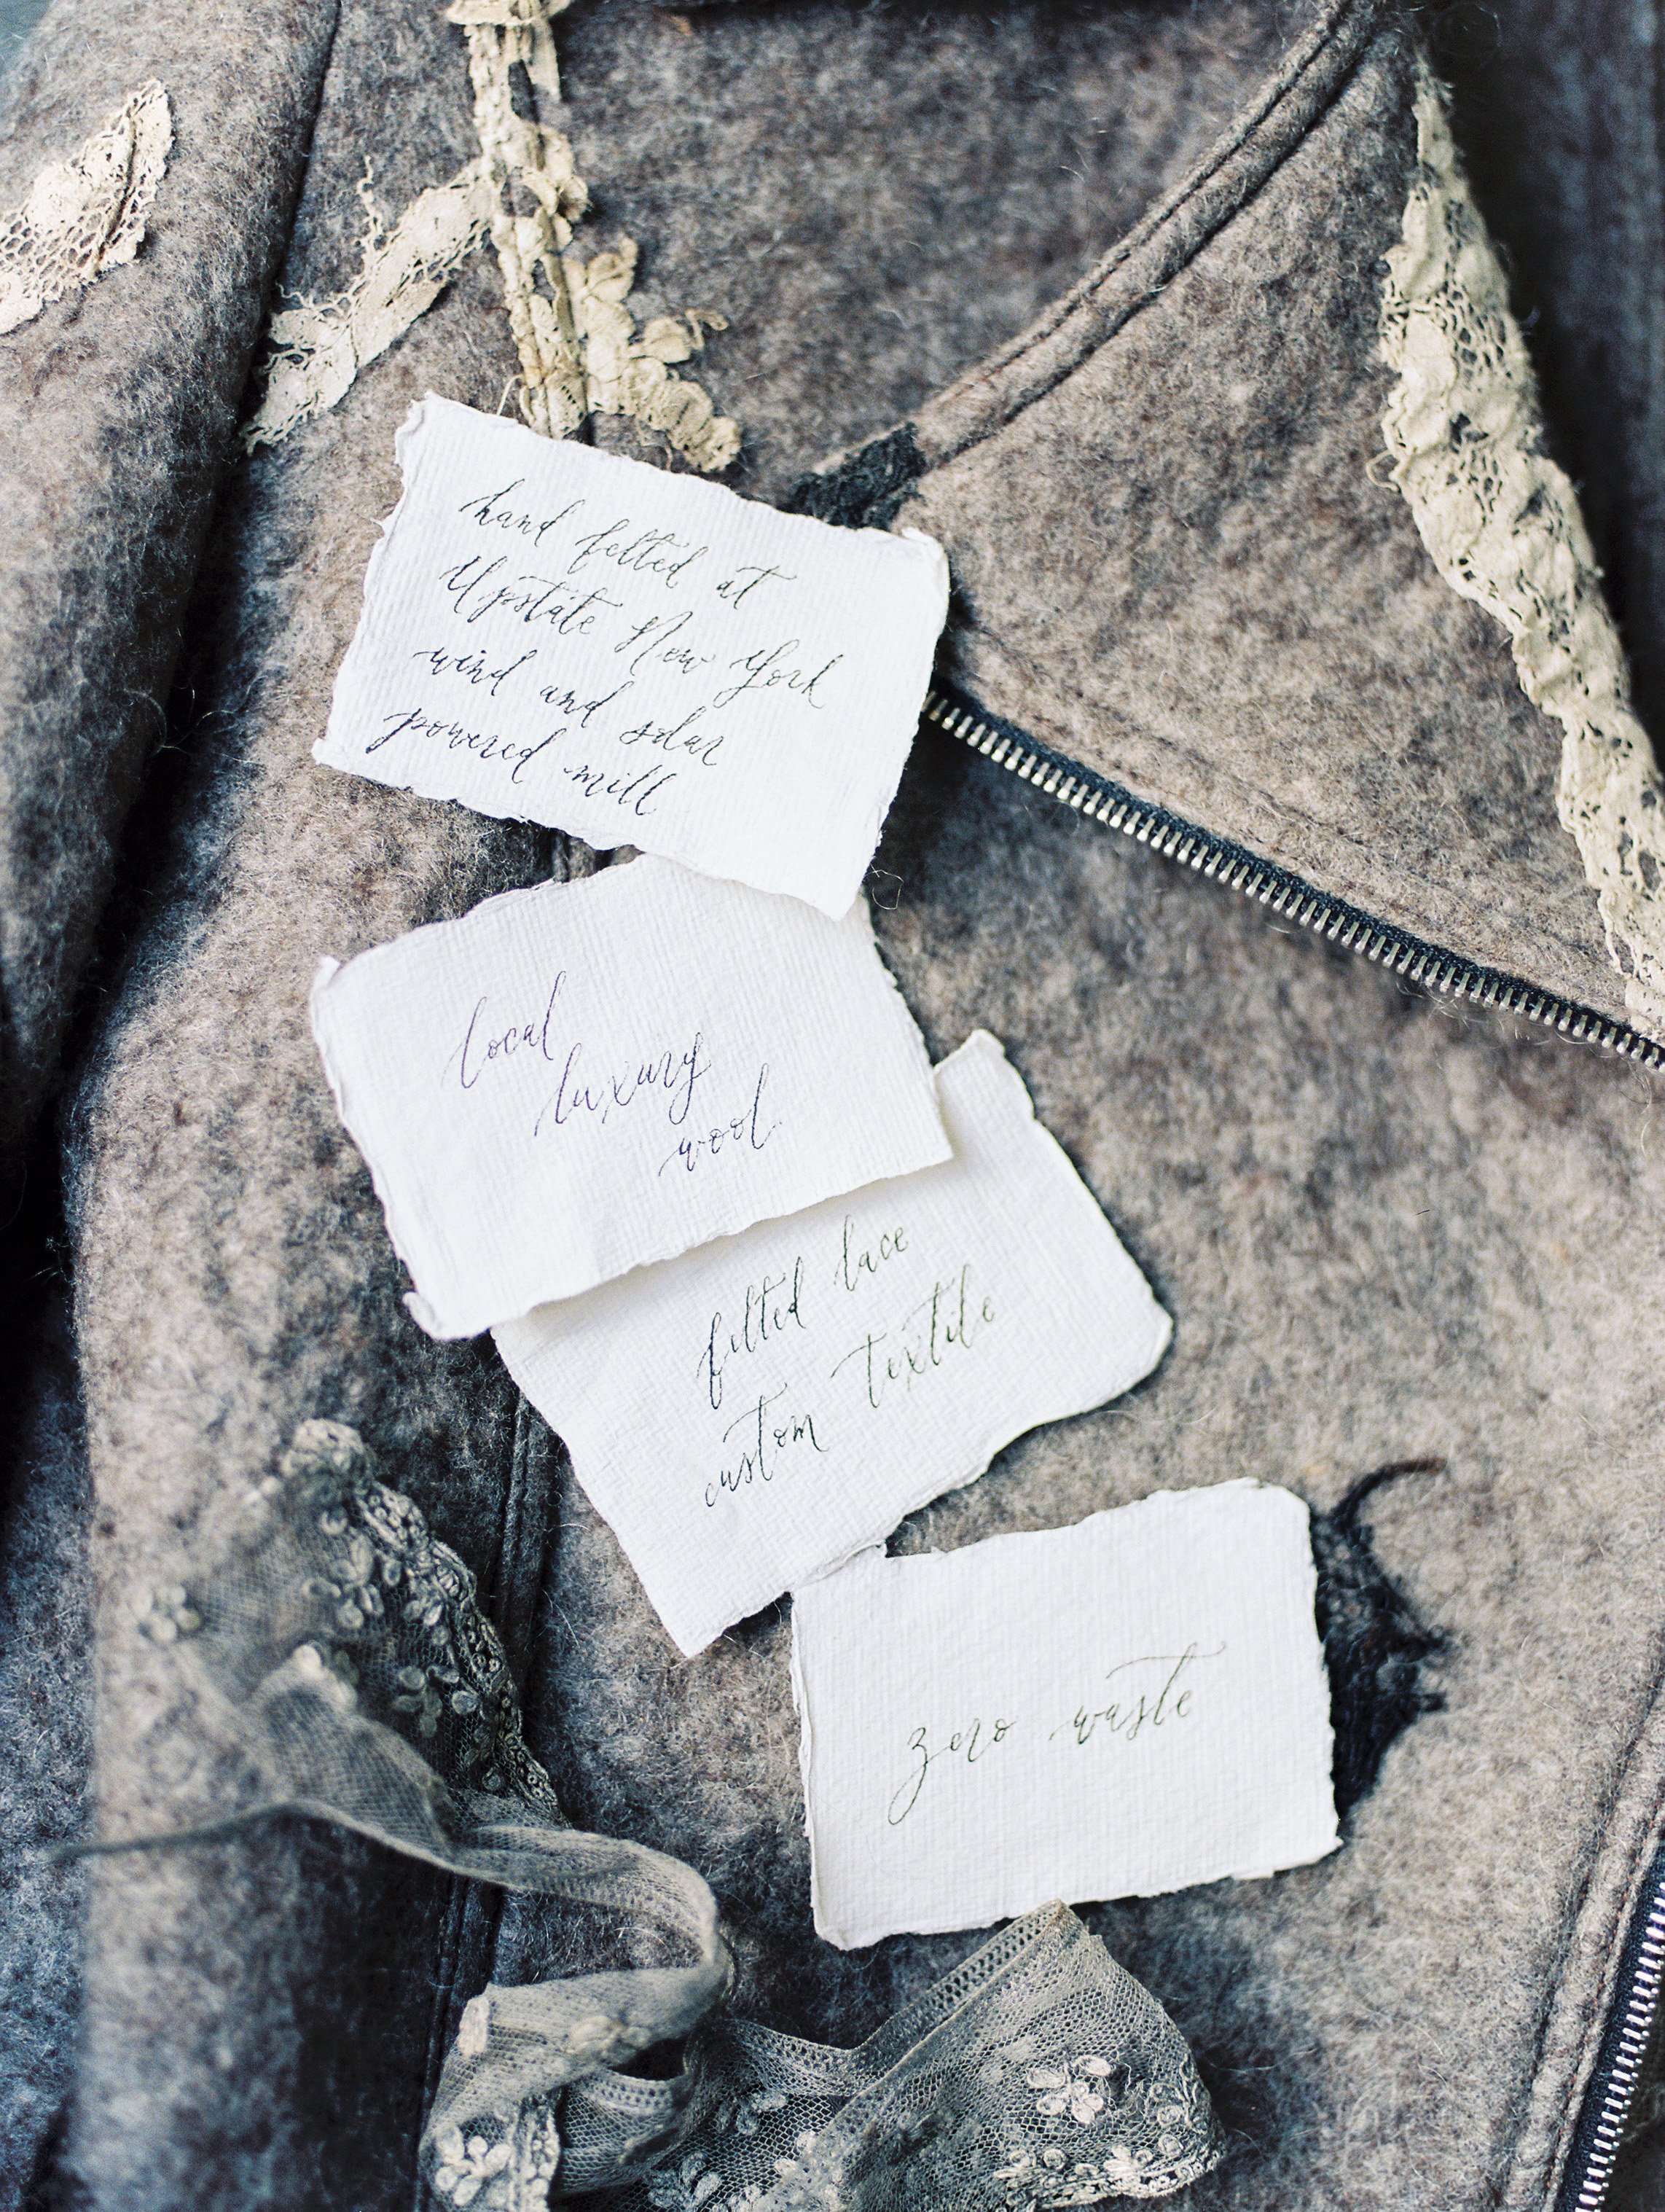 hand felted at
Upstate New York
wind and solar
powered mill
local
luxury
wool
felted lace
custom textile
zero waste